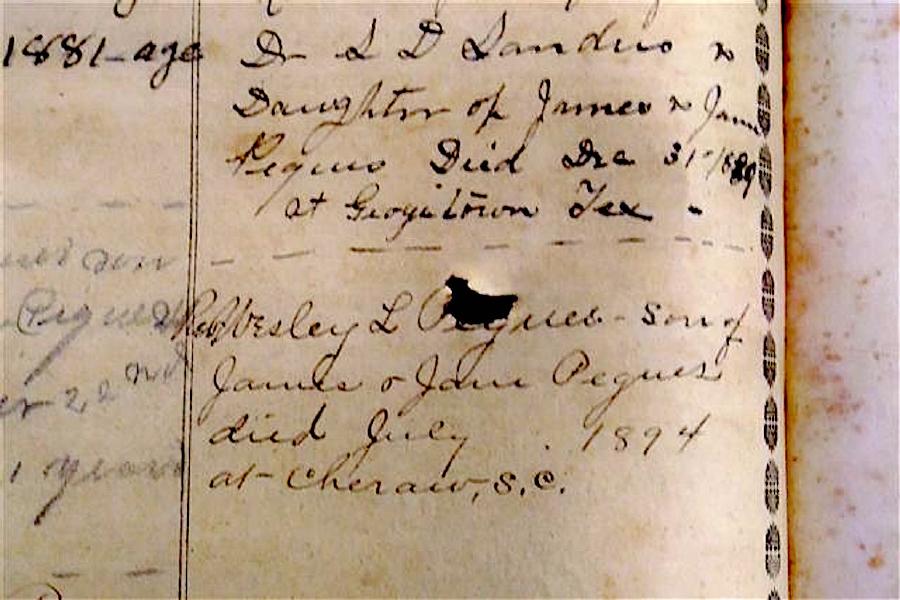 1881 - age
Dr L D Landus &
Daughter of James & Jane
Pegues Died Dec 31st 1889
at Georgetown Tex -
Pegues
22nd
years
Rev Wesley L Pegues - Son of
James & Jane Pegues
died July 1894
at Cheraw, S.C.